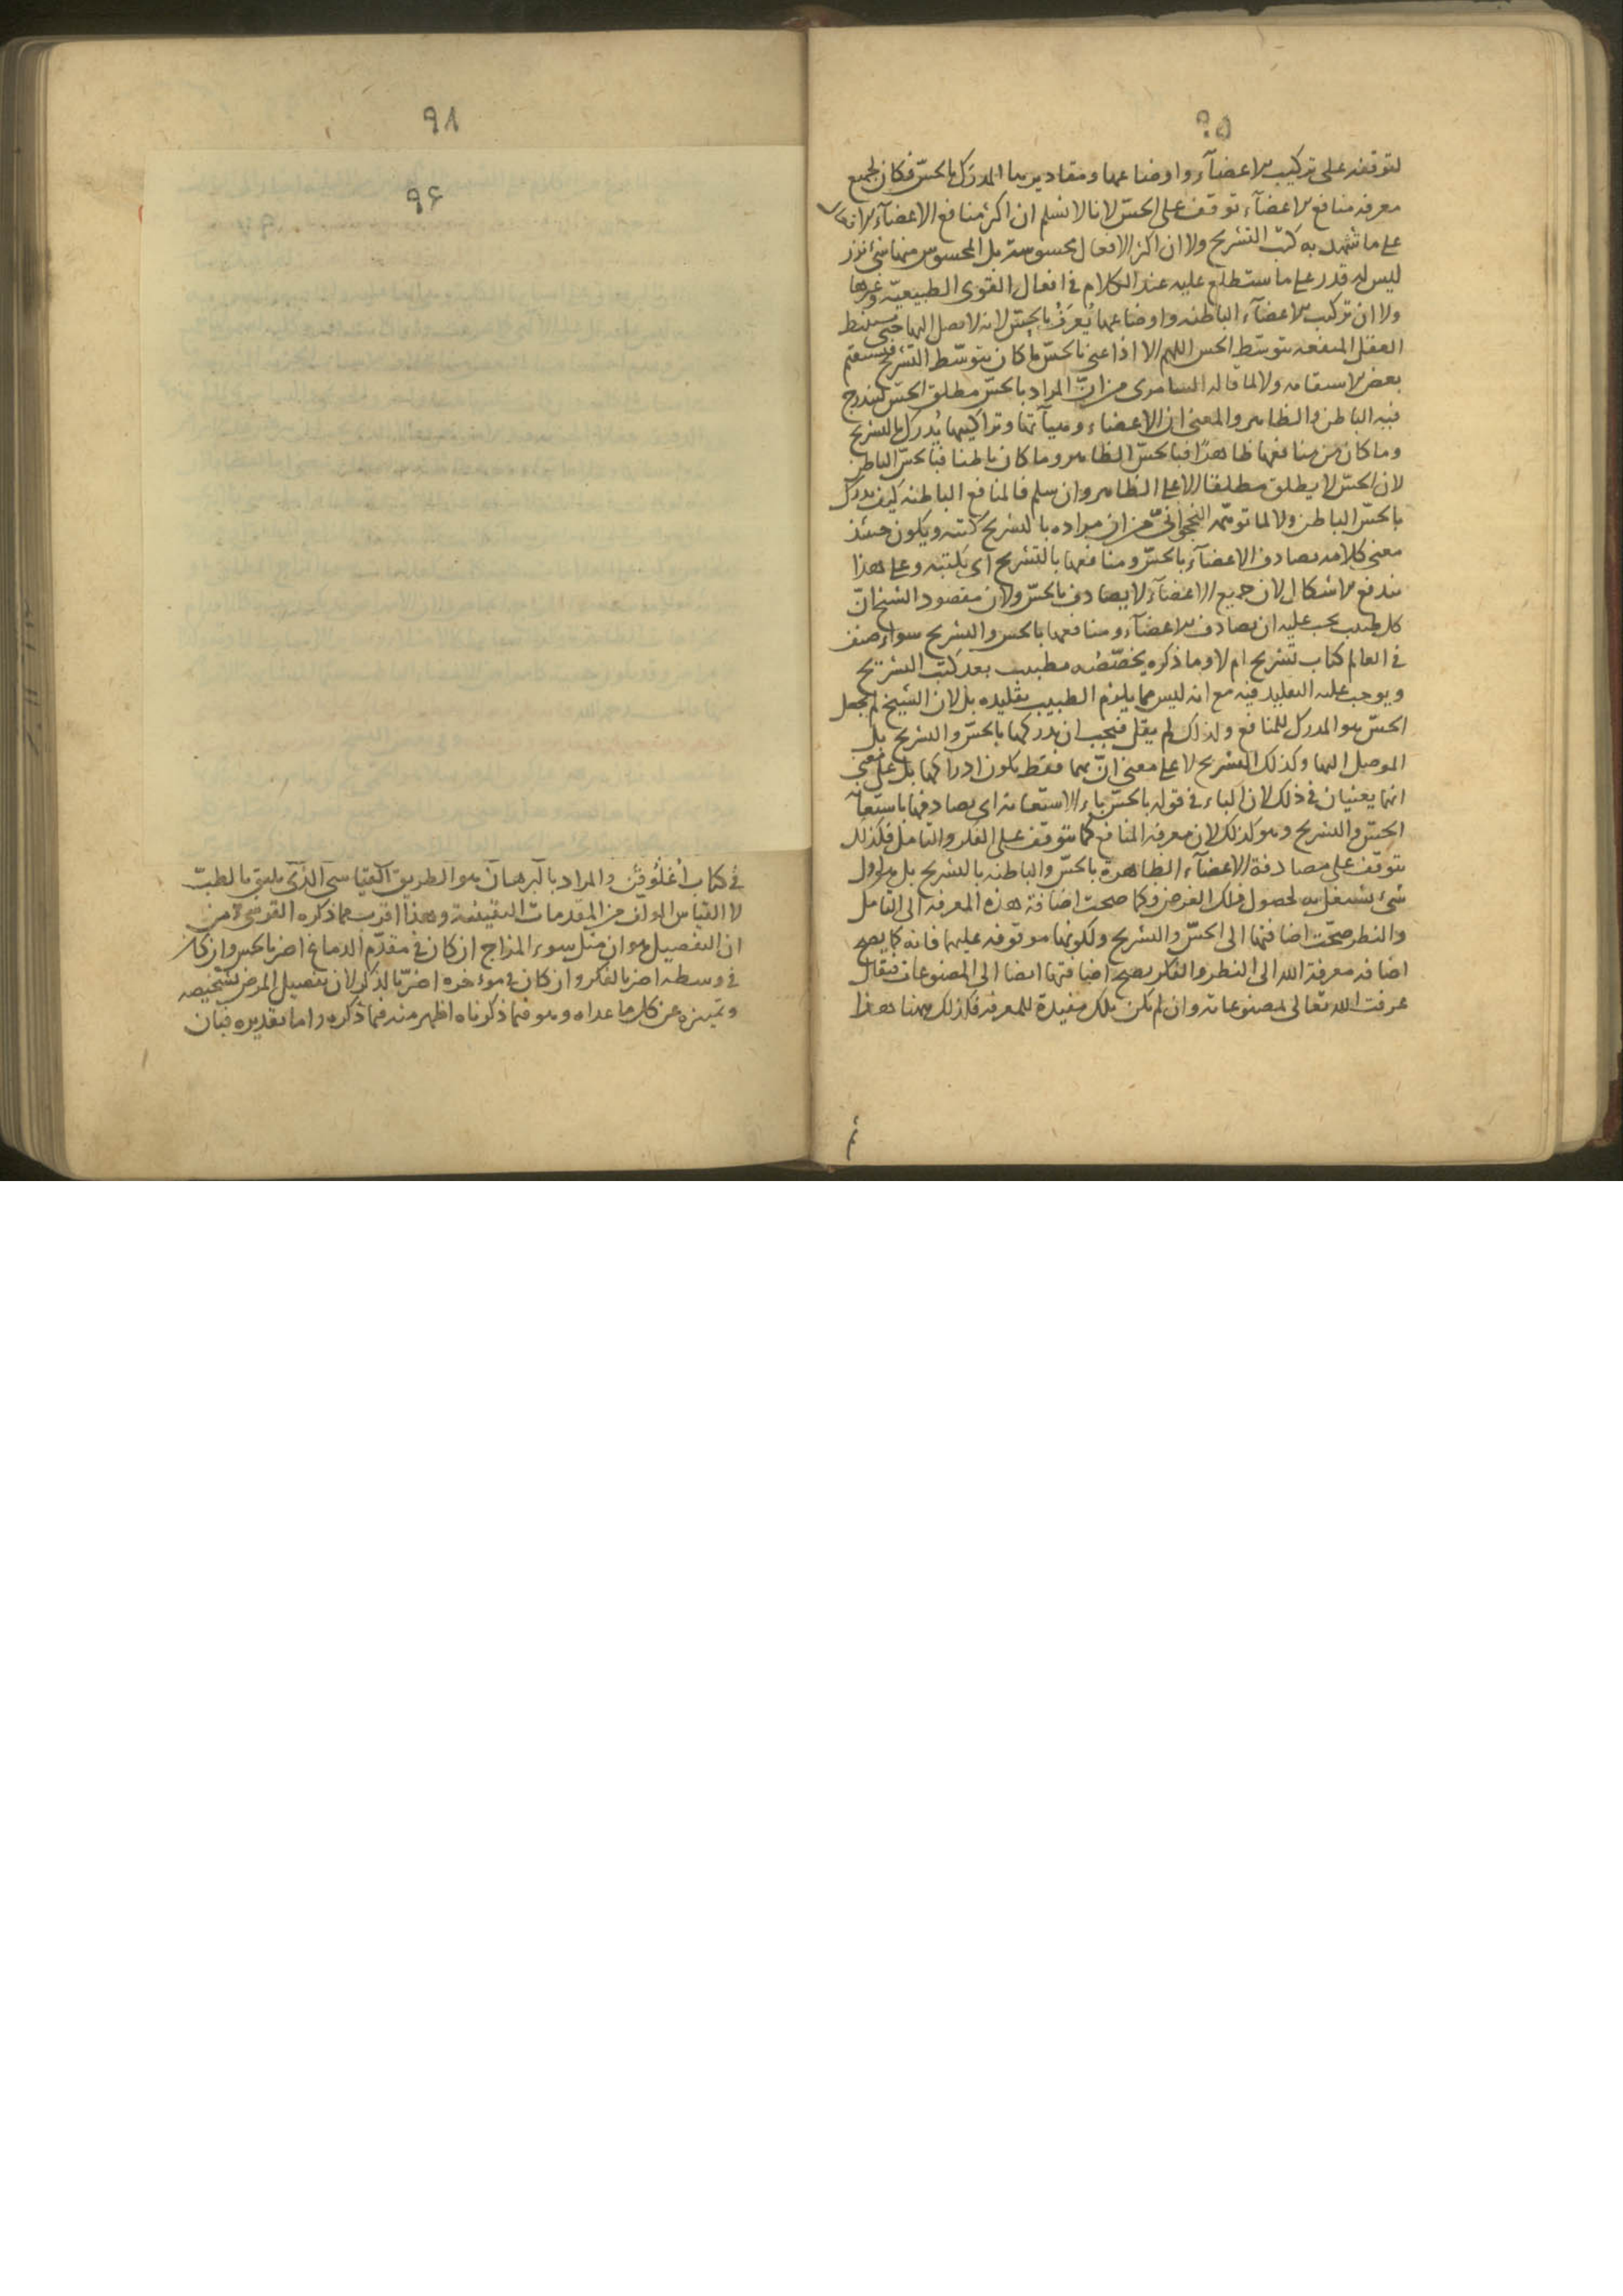 ٩٥
لتوقفه على تركيب الاعضآء واوضاعها ومقاديرها المدرك بالحسّ فكان لجميع
معرفة منافع الاعضآء توقف على الحسّ لانا لا نسلم ان اكثر منافع الاعضآء
على ما تشهد به كتب التشريح ولا ان اكثر الافعال محسوسة بل المحسوس منها شئ نزر
ليس له قدر على ما ستطلع عليه عند الكلام فى افعال القوى الطبيعيّة وغيرها
ولا ان تركيب الاعضآء الباطنه واوضاعها يُعرَفُ بالحِسّ لانه لا يصل اليها حتى يستنبط
العقل المنفعه بتوسّط الحس اللهم الا اذا عنى بالحسّ ما كان بتوسّط التشريح فيستقيم
بعض الاستقامه ولا لما قاله السامرى من انّ المراد بالحسّ مطلق الحسّ ليندرج
فيه الباطن والظاهر والمعنى ان الاعضاء وهيآتها وتراكيبها يُدرك بالتشريح
وما كان من منافعها ظاهرًا فبالحسّ الظاهر وما كان باطنا فبالحسّ الباطن
لان الحسّ لا يطلق مطلقا الا على الظاهر وان سلم فالمنافع الباطنه كيف يدرك
بالحسّ الباطن ولا لما توهّمه النخجوانىّ من ان مراده بالتشريح كتبه ويكون حينئذ
معنى كلامه يصادف الاعضآء بالحسّ ومنافعها بالتشريح اى بكتبه وعلى هذا
يندفع الاشكال لان جميع الاعضآء لا يصادف بالحسّ ولان مقصود الشيخ انّ
كل طبيب يجب عليه ان يصادف الاعضآء ومنافعها بالحس والتشريح سواء صنف
فى العالم كتاب تشريح ام لا وما ذكره يخصّصُه بطبيب بعد كتب التشريح
ويوجب عليه التقليد فيه مع انه ليس مما يلزم الطبيب تقليده بل لان الشيخ لم يجعل
الحسّ هو المدرك للمنافع ولذلك لم يقل فيجب ان يدركها بالحسّ والتشريح بل
الموصل اليها وكذلك التشريح لا على معنى انّ بهما فقط يكون ادراكها بل على معنى
انهما يعنيان فى ذلك لان الباء فى قوله بالحسّ باء الاستعانة اى يصادفها باستعانة
الحسّ والتشريح وهو كذلك لان معرفة المنافع كما يتوقف على الفكر والتامل فكذلك
يتوقف على مصادفة الاعضآء الظاهرة بالحسّ والباطنه بالتشريح بل هو اول
شئ يشتغل به لحصول ذلك الغرض وكما صحت اضافة هذه المعرفه الى التامل
والنظر صحّت اضافتها الى الحسّ والتشريح ولكونها موقوفه عليهما فانه كما يصح
اضافه معرفة الله الى النظر والفكر يصح اضافتها ايضا الى المصنوعات فيقال
عرفت الله تعالى بمصنوعاته وان لم تكن تلك مفيدة للمعرفه فكذلك ههنا هذا
٩٨
٩٦
فى كتاب اُغلُوقُن والمراد بالبرهان هو الطريق القياسى الذى يليق بالطبّ
لا القياس المولّف من المقدمات اليقينية وهذا اقرب مما ذكره القرشى من
ان التفصيل هو ان مثل سوء المزاج ان كان فى مقدّم الدماغ اضر بالحس وان كان
فى وسطه اضر بالفكر وان كان فى موءخره اضرّ بالذكر لان تفصيل المرض تشخيصه
وتميزه عن كل ما عداه وهو فيما ذكرناه اظهر منه فيما ذكره واما تقديره فبان